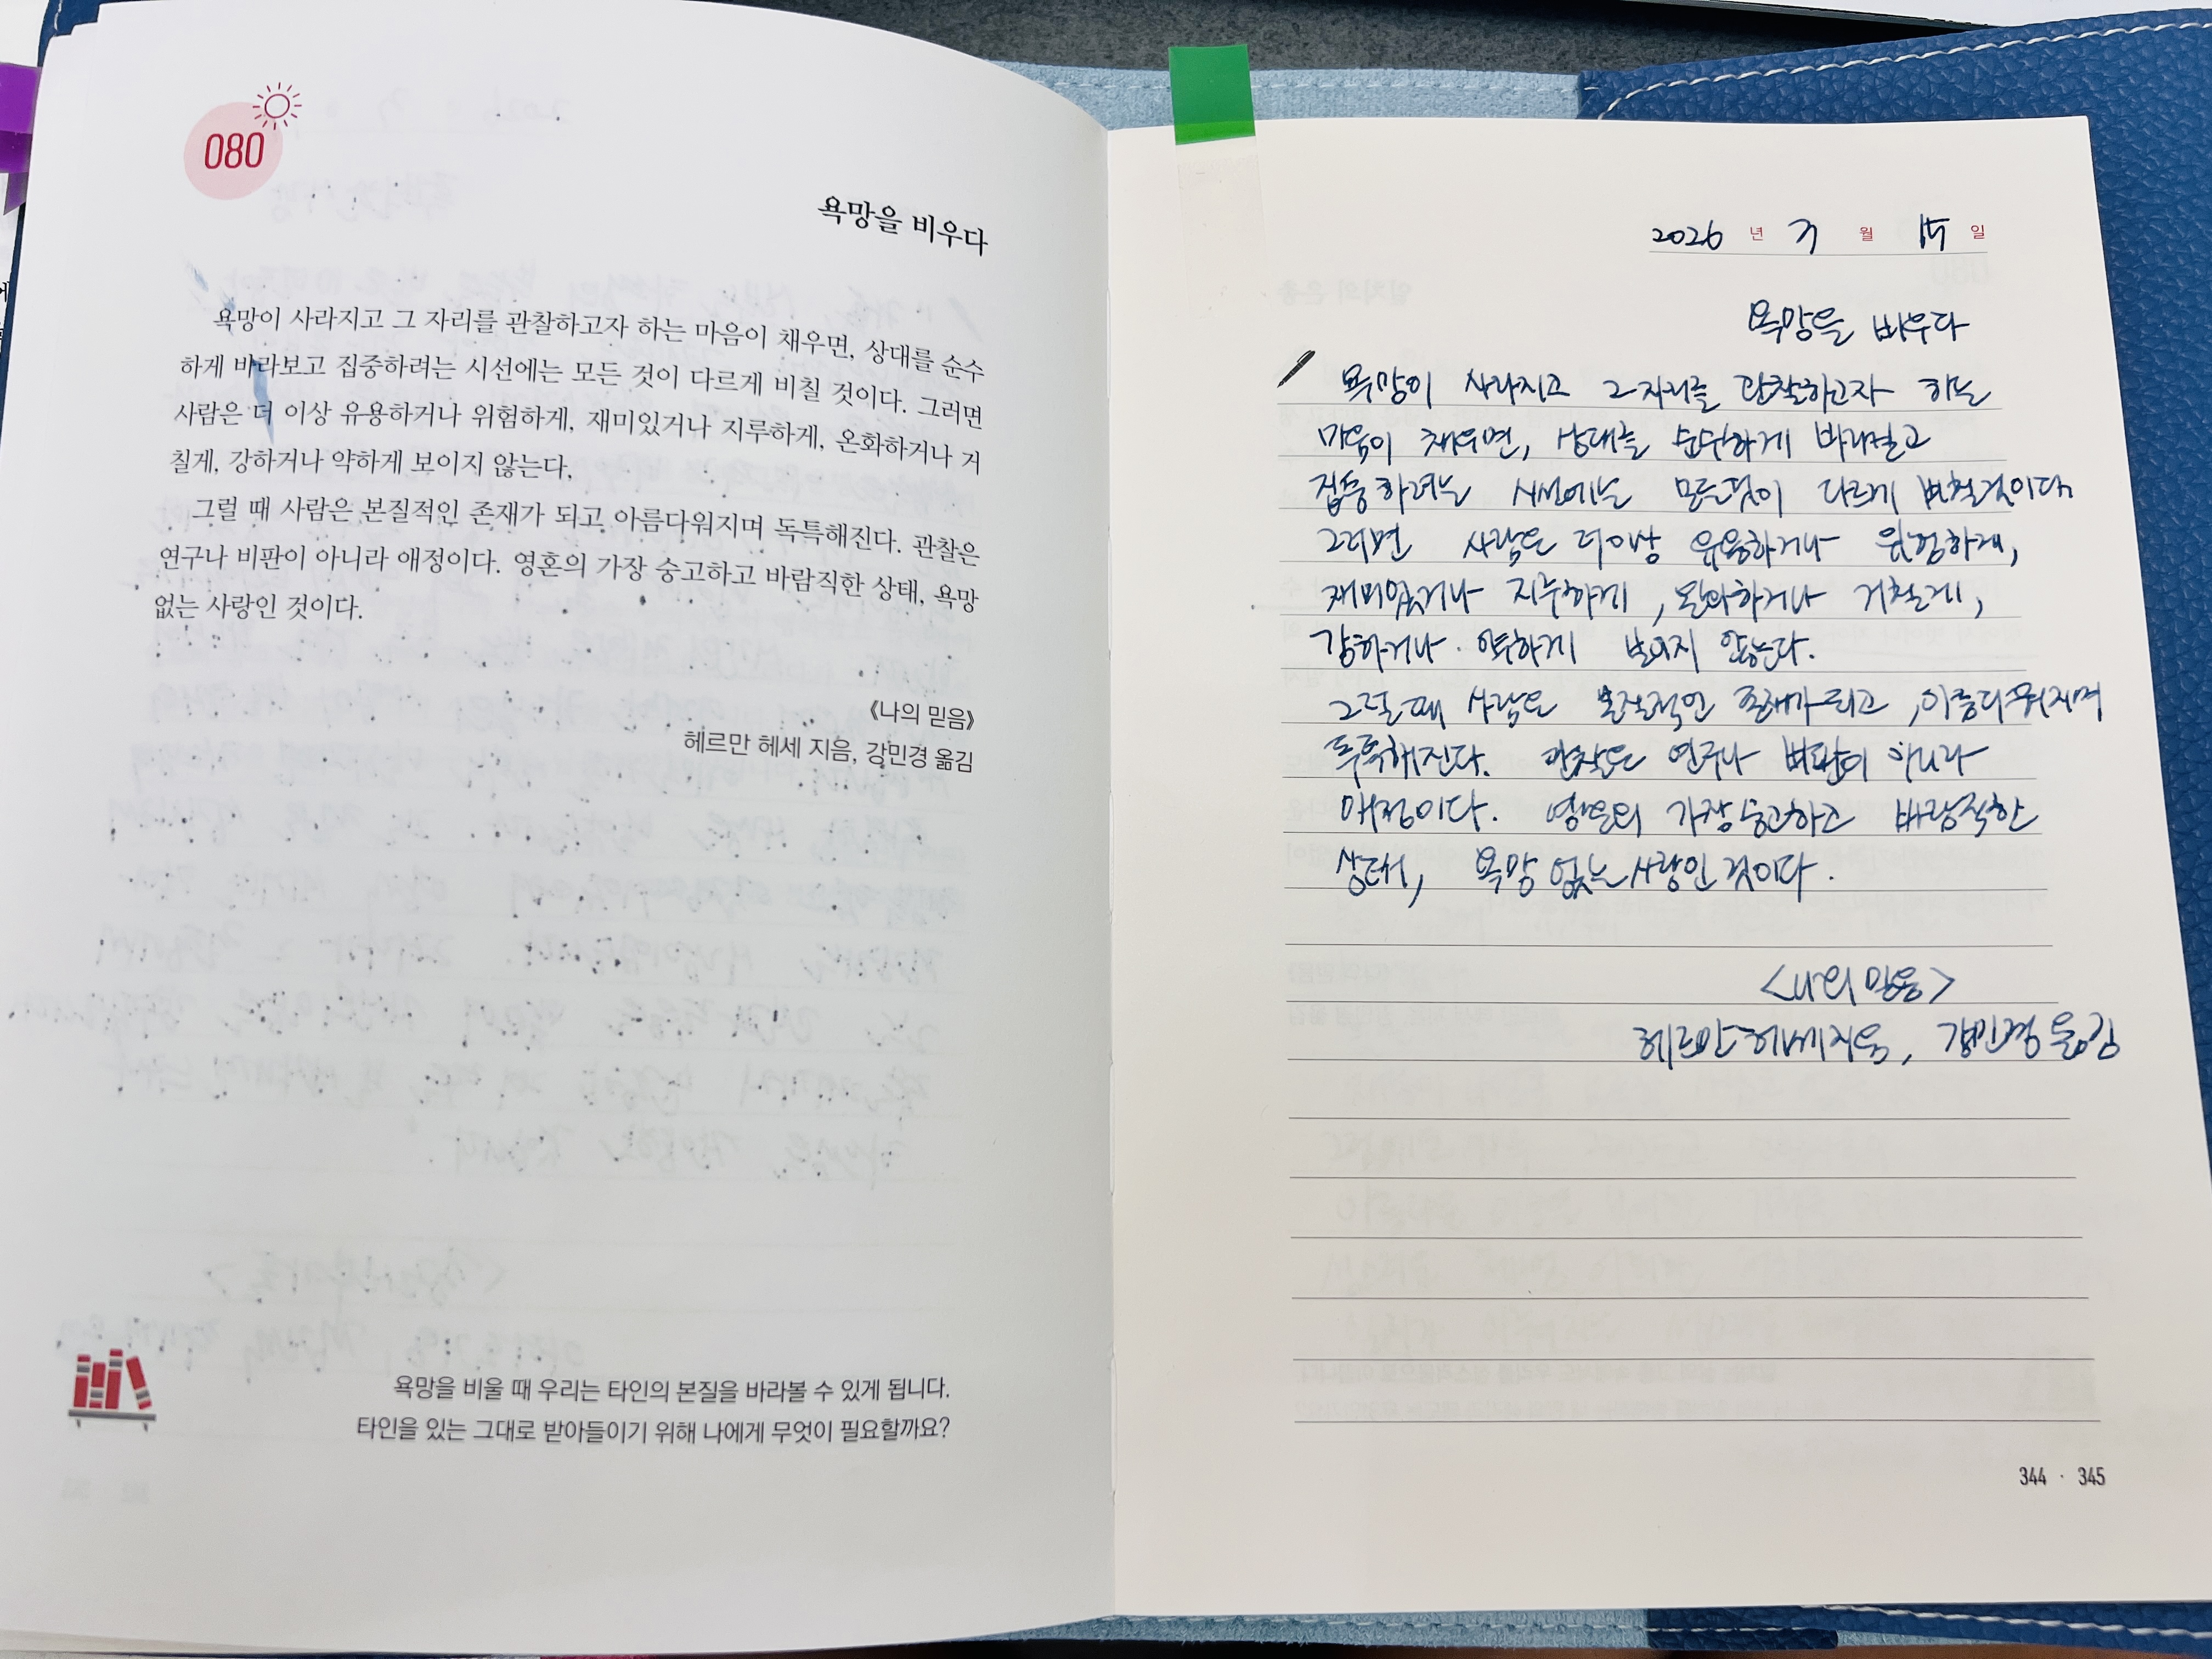 080
욕망을 비우다
욕망이 사라지고 그 자리를 관찰하고자 하는 마음이 채우면, 상대를 순수
하게 바라보고 집중하려는 시선에는 모든 것이 다르게 비칠 것이다. 그러면
사람은 더 이상 유용하거나 위험하게, 재미있거나 지루하게, 온화하거나 거
칠게, 강하거나 약하게 보이지 않는다.
그럴 때 사람은 본질적인 존재가 되고 아름다워지며 독특해진다. 관찰은
연구나 비판이 아니라 애정이다. 영혼의 가장 숭고하고 바람직한 상태, 욕망
없는 사랑인 것이다.
《나의 믿음》
헤르만 헤세 지음, 강민경 옮김
욕망을 비울 때 우리는 타인의 본질을 바라볼 수 있게 됩니다.
타인을 있는 그대로 받아들이기 위해 나에게 무엇이 필요할까요?
2026 년 3 월 15 일
욕망을 비우다
욕망이 사라지고 그 자리를 관찰하고자 하는
마음이 채우면, 상대를 순수하게 바라보고
집중하려는 시선에는 모든것이 다르게 비칠것이다.
그러면 사람은 더이상 유용하거나 위험하게,
재미있거나 지루하게, 온화하거나 거칠게,
강하거나 약하게 보이지 않는다.
그럴 때 사람은 본질적인 존재가 되고, 아름다워지며
독특해진다. 관찰은 연구나 비판이 아니라
애정이다. 영혼의 가장 숭고하고 바람직한
상태, 욕망 없는 사랑인 것이다.
<나의 믿음>
헤르만 헤세 지음, 강민경 옮김
344 · 345